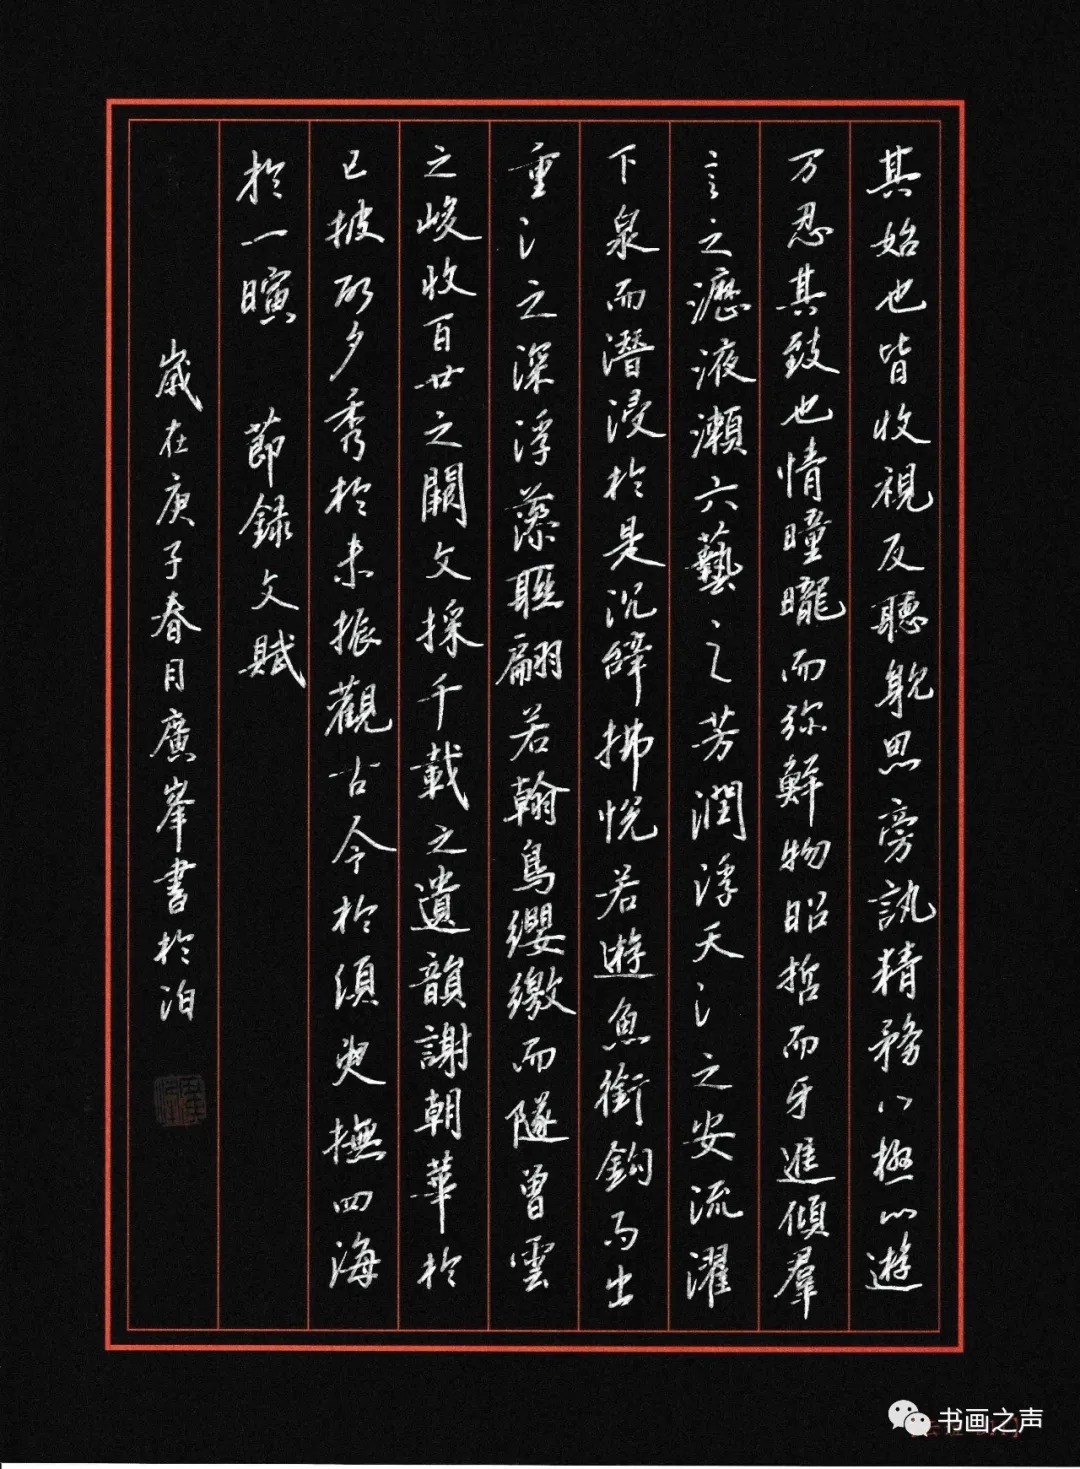 其始也皆收視反聽躭思旁訊精務八極心遊
万忍其致也情曈曨而弥鮮物昭哲而牙進傾羣
言之瀝液瀨六藝之芳潤浮天氵之安流濯
下泉而潛浸於是沉辝拂悅若遊魚銜鈎而出
重氵之深浮藻聯翩若翰鳥纓繳而隧曾雲
之峻收百世之闕文採千載之遺韻謝朝華於
已披啓夕秀於未振觀古今於須臾撫四海
於一瞚 節録文賦
歲在庚子春月廣峯書於泊
书画之声